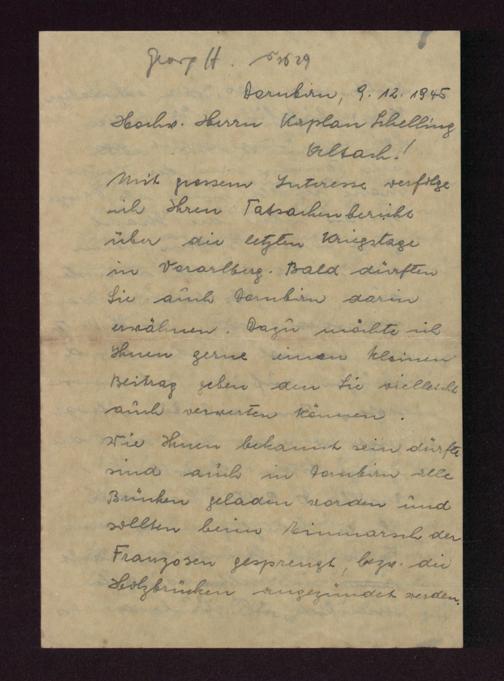 Georg H.
Dornbirn, 9. 12. 1945
Hochw. Herrn Kaplan Schelling
Altach!
Mit grossem Interesse verfolge
ich Ihren Tatsachenbericht
über die letzten Kriegstage
in Vorarlberg. Bald dürften
Sie auch Dornbirn darin
erwähnen. Dazu möchte ich
Ihnen gerne einen kleinen
Beitrag geben den Sie vielleicht
auch verwerten können.
Wie Ihnen bekannt sein dürfte
sind auch in Dornbirn alle
Brücken geladen worden und
sollten beim Einmarsch der
Franzosen gesprengt, bezw. die
Holzbrücken angezündet werden.